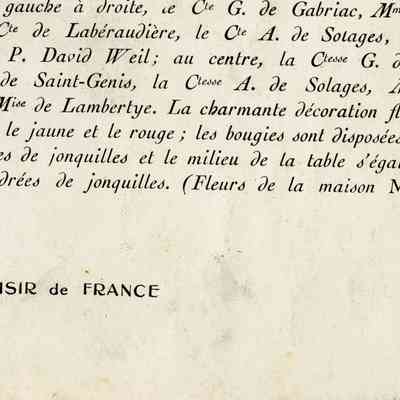 gauche à droite, le Cte G. de Gabriac, Mm
Cte de Labéraudière, le Cte A. de Solages,
P. David Weil; au centre, la Ctesse G. d
de Saint-Genis, la Ctesse A. de Solages,
Mise de Lambertye. La charmante décoration fl
le jaune et le rouge; les bougies sont disposées
es de jonquilles et le milieu de la table s'éga
drées de jonquilles. (Fleurs de la maison M
ISIR de FRANCE